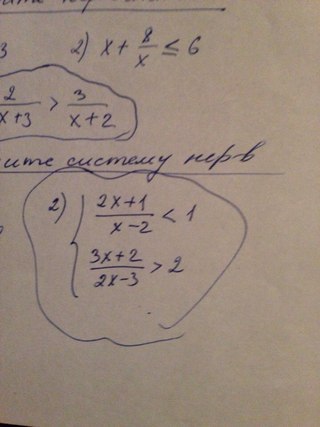 3 2) x + 8/x ≤ 6
2/(x+3) > 3/(x+2)
ите систему нер-в
2) { (2x+1)/(x-2) < 1
(3x+2)/(2x-3) > 2